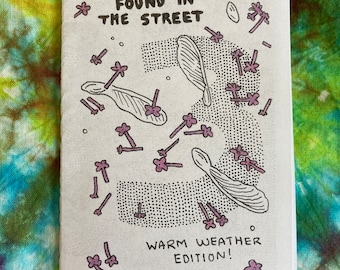 FOUND IN
THE STREET
WARM WEATHER
EDITION!